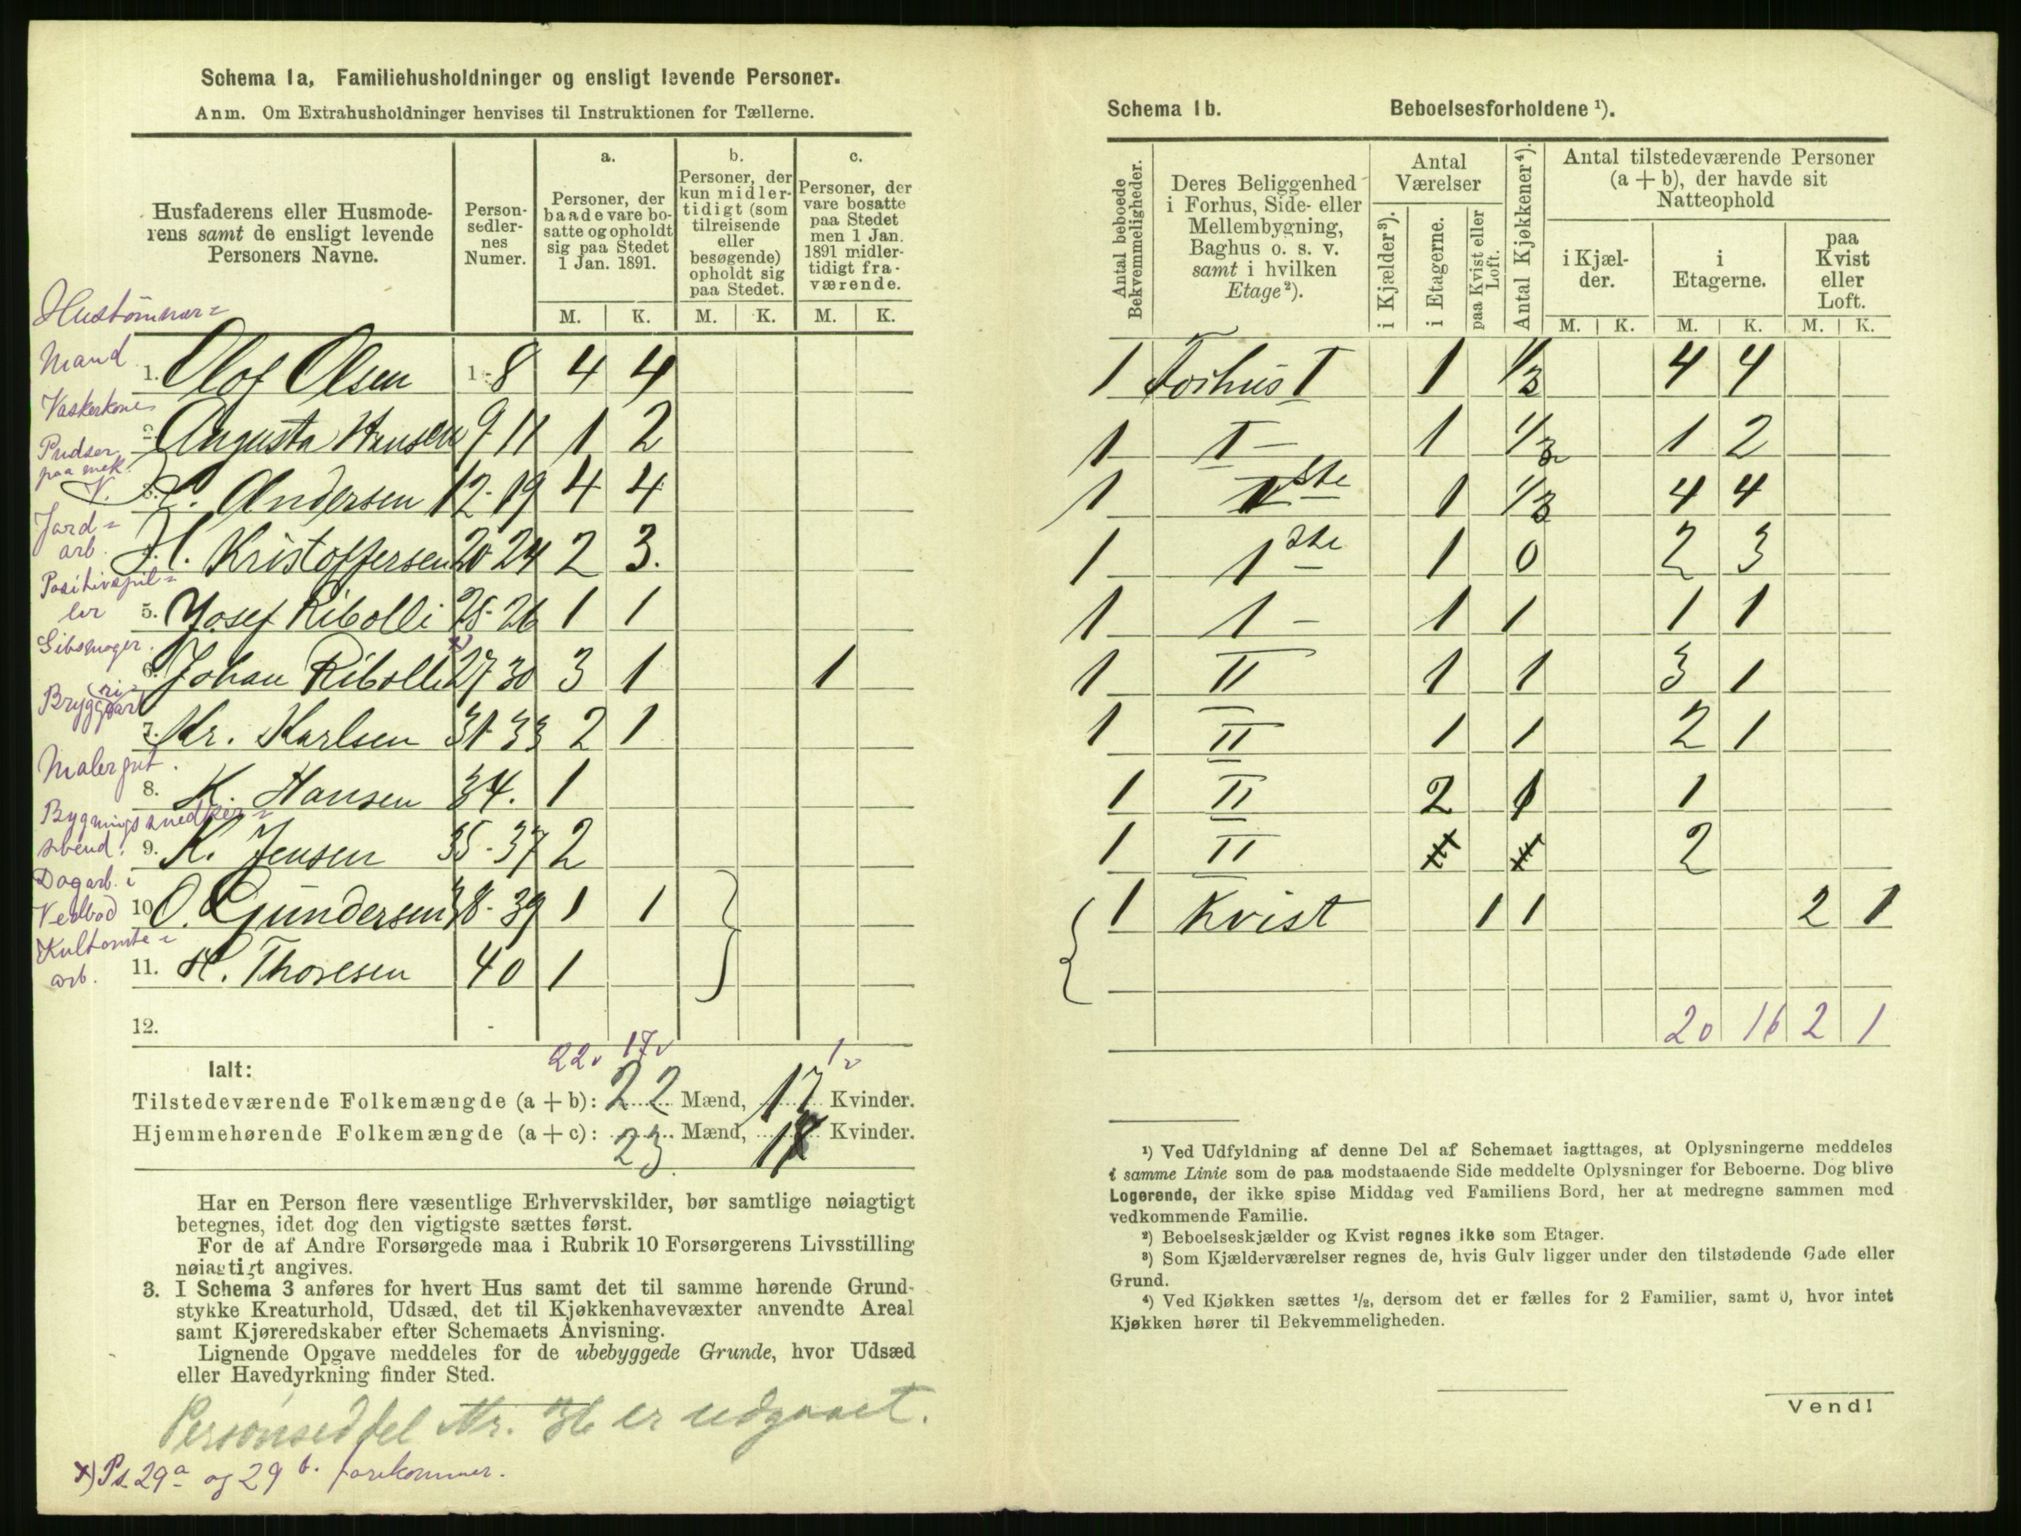 Schema 1a, Familiehusholdninger og ensligt levende Personer.
Anm. Om Extrahusholdninger henvises til Instruktionen for Tællerne.
Husfaderens eller Husmoderens samt de ensligt levende Personers Navne.
Personsedlernes Numer.
a. Personer, der baade vare bosatte og opholdt sig paa Stedet 1 Jan. 1891.
b. Personer, der kun midlertidigt (som tilreisende eller besøgende) opholdt sig paa Stedet.
c. Personer, der vare bosatte paa Stedet men 1 Jan. 1891 midlertidigt fraværende.
M. K. M. K. M. K.
Hustømmer=
Mand
1. Olof Olsen 1-8 4 4
Vaskerkone
2. Augusta Hansen 9-11 1 2
Pudser paa mek. V.
3. Andersen 12-19 4 4
Jord= arb.
H. Kristoffersen 20 24 2 3.
Positivspil= ler
5. Josef Ribolli 25-26 1 1
Gibsmager.
6. Johan Ribolli x) 27 30 3 1 1
Bryggeri= arb
7. Kr. Karlsen 31-33 2 1
Malergut.
8. K. Hansen 34. 1
Bygningssnedker= svend.
9. K. Jensen 35-37 2
Dagarb. i Vedbod
10 O. Gundersen 38-39 1 1
arb.
11. H. Thoresen 40 1
12.
22 17 1
Ialt:
Tilstedeværende Folkemængde (a + b): 22 Mænd, 17 Kvinder.
Hjemmehørende Folkemængde (a + c): 23 Mænd, 17 Kvinder.
Har en Person flere væsentlige Erhvervskilder, bør samtlige nøiagtigt
betegnes, idet dog den vigtigste sættes først.
For de af Andre Forsørgede maa i Rubrik 10 Forsørgerens Livsstilling
nøiagtigt angives.
3. I Schema 3 anføres for hvert Hus samt det til samme hørende Grund-
stykke Kreaturhold, Udsæd, det til Kjøkkenhavevæxter anvendte Areal
samt Kjøreredskaber efter Schemaets Anvisning.
Lignende Opgave meddeles for de ubebyggede Grunde, hvor Udsæd
eller Havedyrkning finder Sted.
Personseddel Nr. 36 er udgaaet.
x) Ps. 29a og 29b. forekommer.
Schema 1b. Beboelsesforholdene ¹).
Antal beboede Bekvemmeligheder.
Deres Beliggenhed i Forhus, Side- eller Mellembygning, Baghus o. s. v. samt i hvilken Etage²).
Antal Værelser
i Kjælder³).
i Etagerne.
paa Kvist eller Loft.
Antal Kjøkkener⁴).
Antal tilstedeværende Personer (a + b), der havde sit Natteophold
i Kjælder.
i Etagerne.
paa Kvist eller Loft.
M. K. M. K. M. K.
1 Forhus I 1 1/3 4 4
1 I - 1 1/3 1 2
1 1ste 1 1/3 4 4
1 1ste 1 0 2 3
1 1 - 1 1 1 1
1 II 1 1 3 1
1 II 1 1 2 1
1 II 2 1 1
1 II 2
1 Kvist 1 1 2 1
20 16 2 1
¹) Ved Udfyldning af denne Del af Schemaet iagttages, at Oplysningerne meddeles
i samme Linie som de paa modstaaende Side meddelte Oplysninger for Beboerne. Dog blive
Logerende, der ikke spise Middag ved Familiens Bord, her at medregne sammen med
vedkommende Familie.
²) Beboelseskjælder og Kvist regnes ikke som Etager.
³) Som Kjælderværelser regnes de, hvis Gulv ligger under den tilstødende Gade eller
Grund.
⁴) Ved Kjøkken sættes ½, dersom det er fælles for 2 Familier, samt 0, hvor intet
Kjøkken hører til Bekvemmeligheden.
Vend!